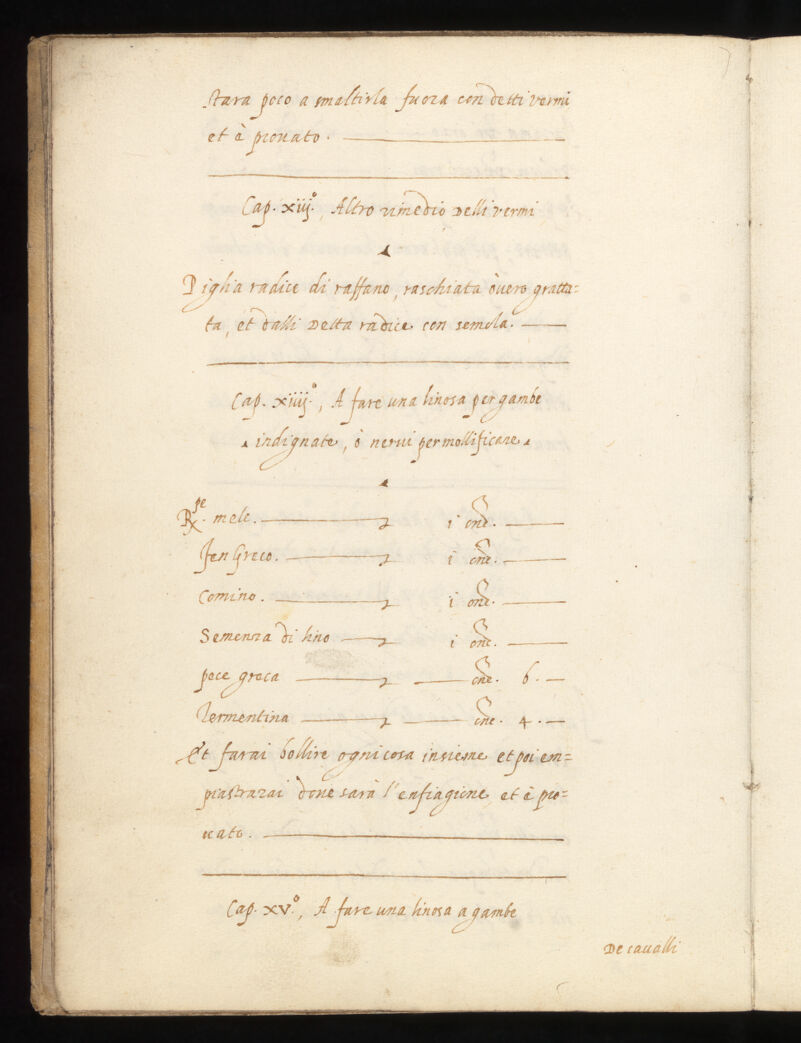 stara poco a smaltirla fuora con detti vermi
et è prouato.
Cap. xiij.º, Altro rimedio delli vermi
Piglia radice di raffano, raschiata ò uero gratta=
ta, et dalli detta radice con semola.
Cap. xiiij.º, A fare una linosa per gambe
indignate, ò nerui per mollificare
Rpe. mele. i onc.
fen Greco. i onc.
Comino. i onc.
Semenza di lino i onc.
pece greca onc. 6.
Termentina onc. 4.
Et farai bollire ogni cosa insieme et poi em=
piastrarai doue sarà l'enfiagione et è pro=
uato.
Cap. xv.º, A fare una linosa a gambe
De caualli